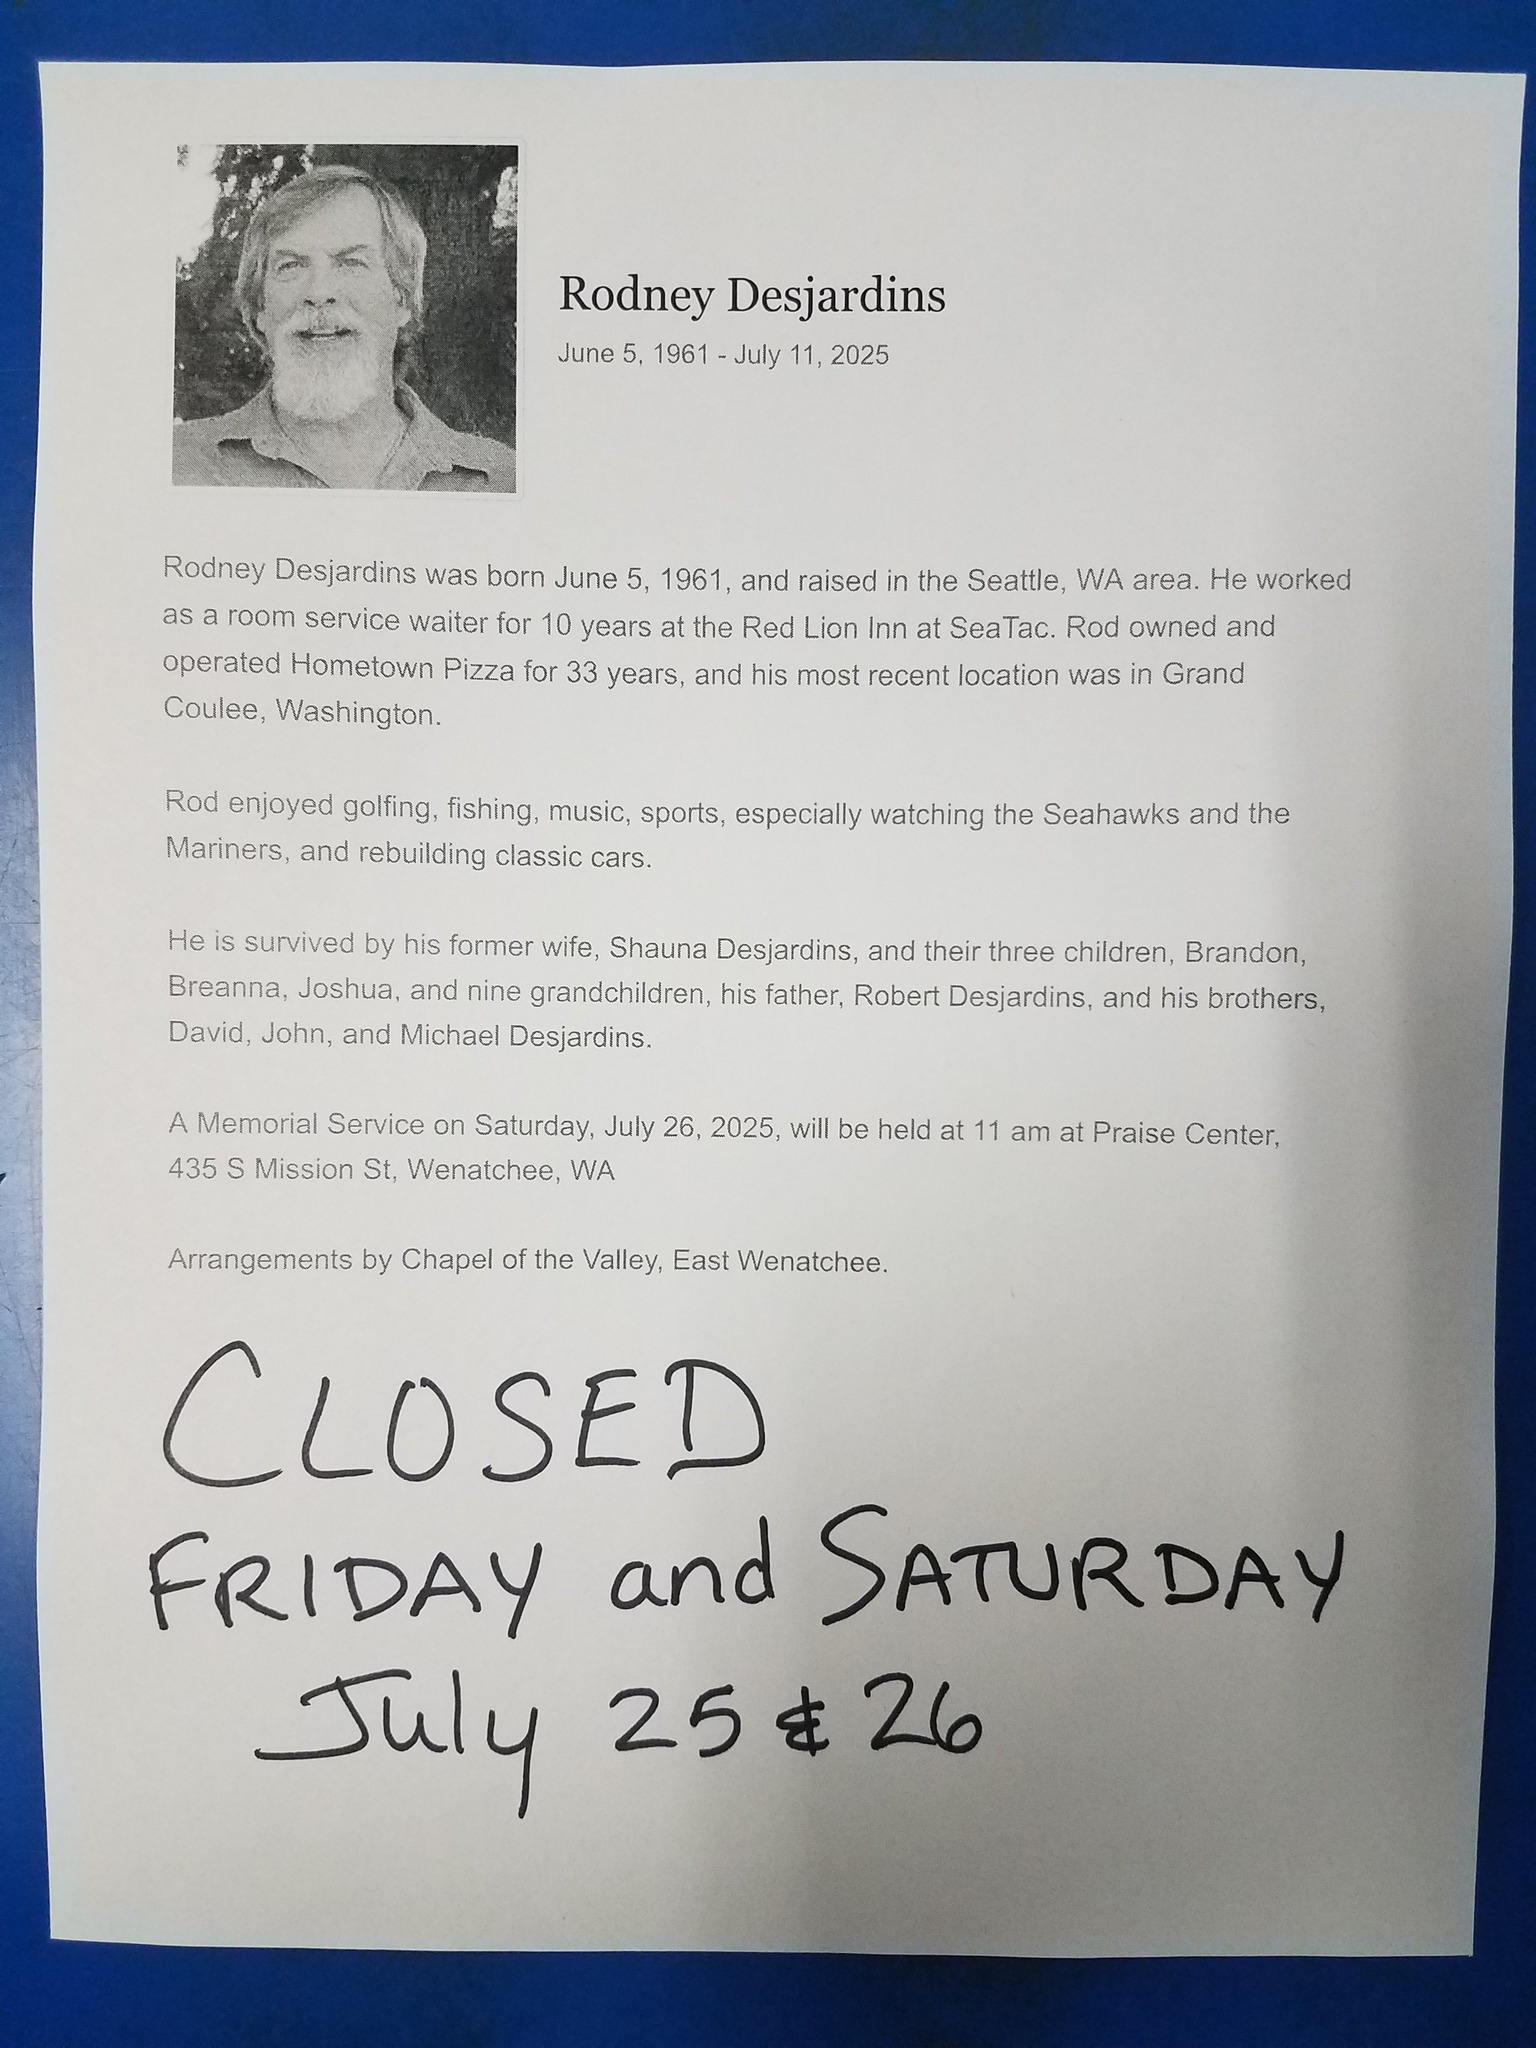 Rodney Desjardins
June 5, 1961 - July 11, 2025
Rodney Desjardins was born June 5, 1961, and raised in the Seattle, WA area. He worked
as a room service waiter for 10 years at the Red Lion Inn at SeaTac. Rod owned and
operated Hometown Pizza for 33 years, and his most recent location was in Grand
Coulee, Washington.
Rod enjoyed golfing, fishing, music, sports, especially watching the Seahawks and the
Mariners, and rebuilding classic cars.
He is survived by his former wife, Shauna Desjardins, and their three children, Brandon,
Breanna, Joshua, and nine grandchildren, his father, Robert Desjardins, and his brothers,
David, John, and Michael Desjardins.
A Memorial Service on Saturday, July 26, 2025, will be held at 11 am at Praise Center,
435 S Mission St, Wenatchee, WA
Arrangements by Chapel of the Valley, East Wenatchee.
CLOSED
FRIDAY and SATURDAY
July 25 & 26